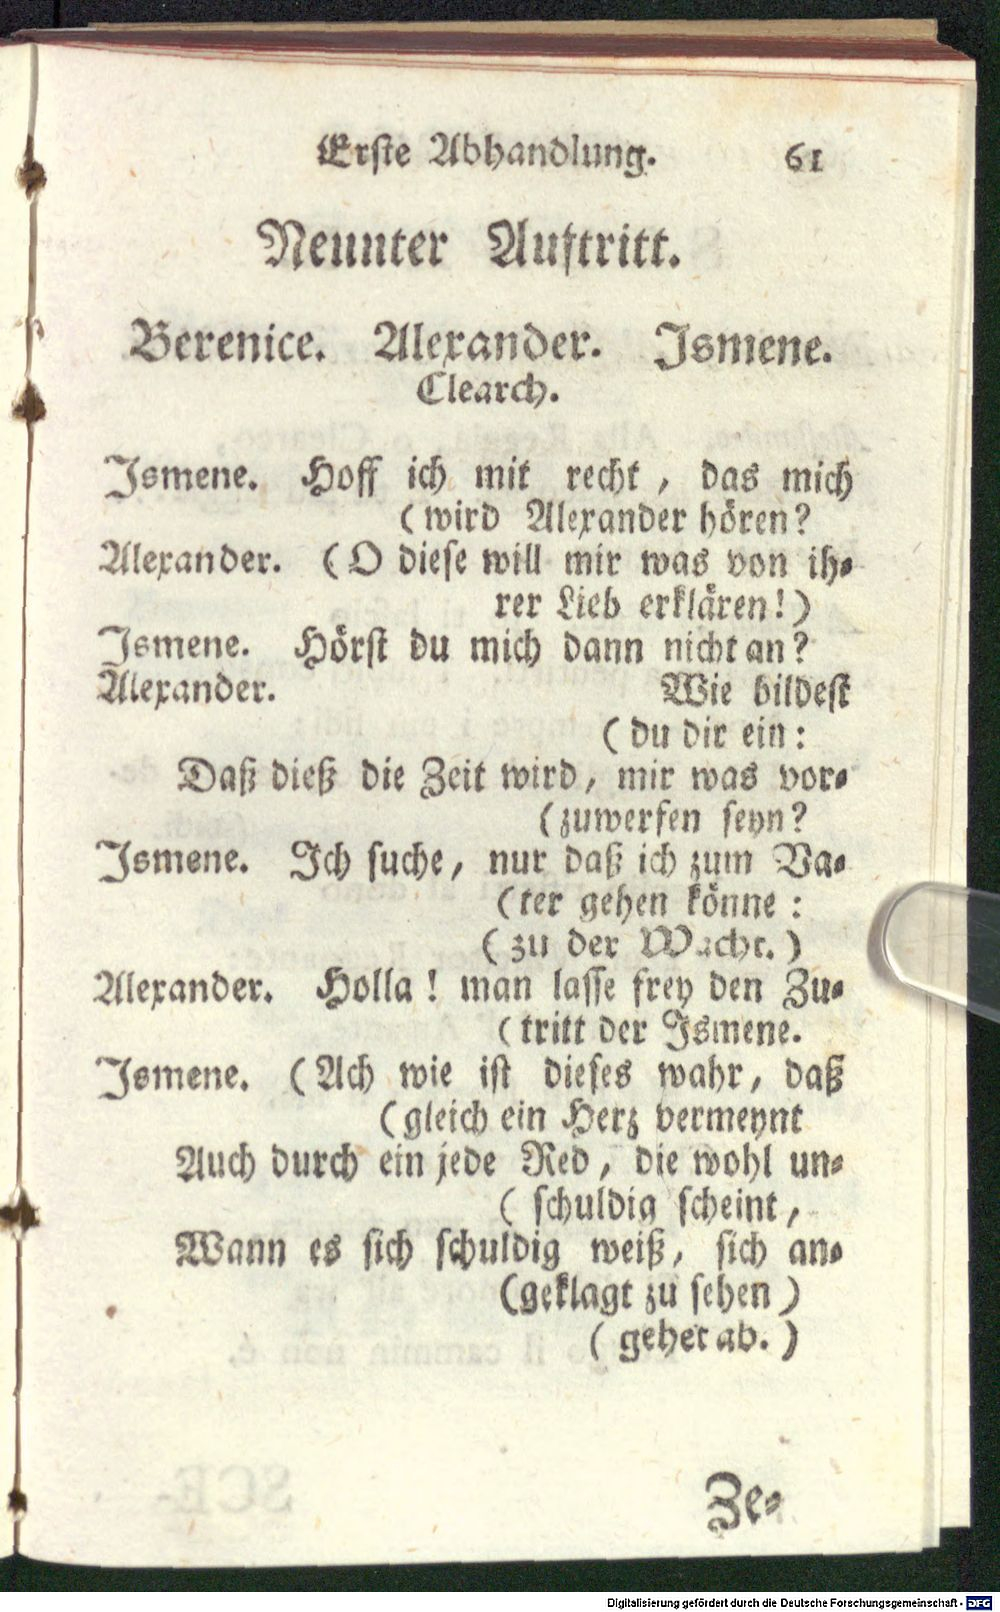 Erſte Abhandlung. 61
Neunter Auftritt.
Berenice. Alexander. Ismene.
Clearch.
Ismene. Hoff ich mit recht, das mich
(wird Alexander hören?
Alexander. (O dieſe will mir was von ih-
rer Lieb erklären!)
Ismene. Hörſt du mich dann nicht an?
Alexander. Wie bildeſt
(du dir ein:
Daß dieß die Zeit wird, mir was vor-
(zuwerfen ſeyn?
Ismene. Ich ſuche, nur daß ich zum Va-
(ter gehen könne:
(zu der Wacht.)
Alexander. Holla! man laſſe frey den Zu-
(tritt der Ismene.
Ismene. (Ach wie iſt dieſes wahr, daß
(gleich ein Herz vermeynt
Auch durch ein jede Red, die wohl un-
(ſchuldig ſcheint,
Wann es ſich ſchuldig weiß, ſich an-
(geklagt zu ſehen)
(gehet ab.)
Ze-
Digitalisierung gefördert durch die Deutsche Forschungsgemeinschaft - DFG